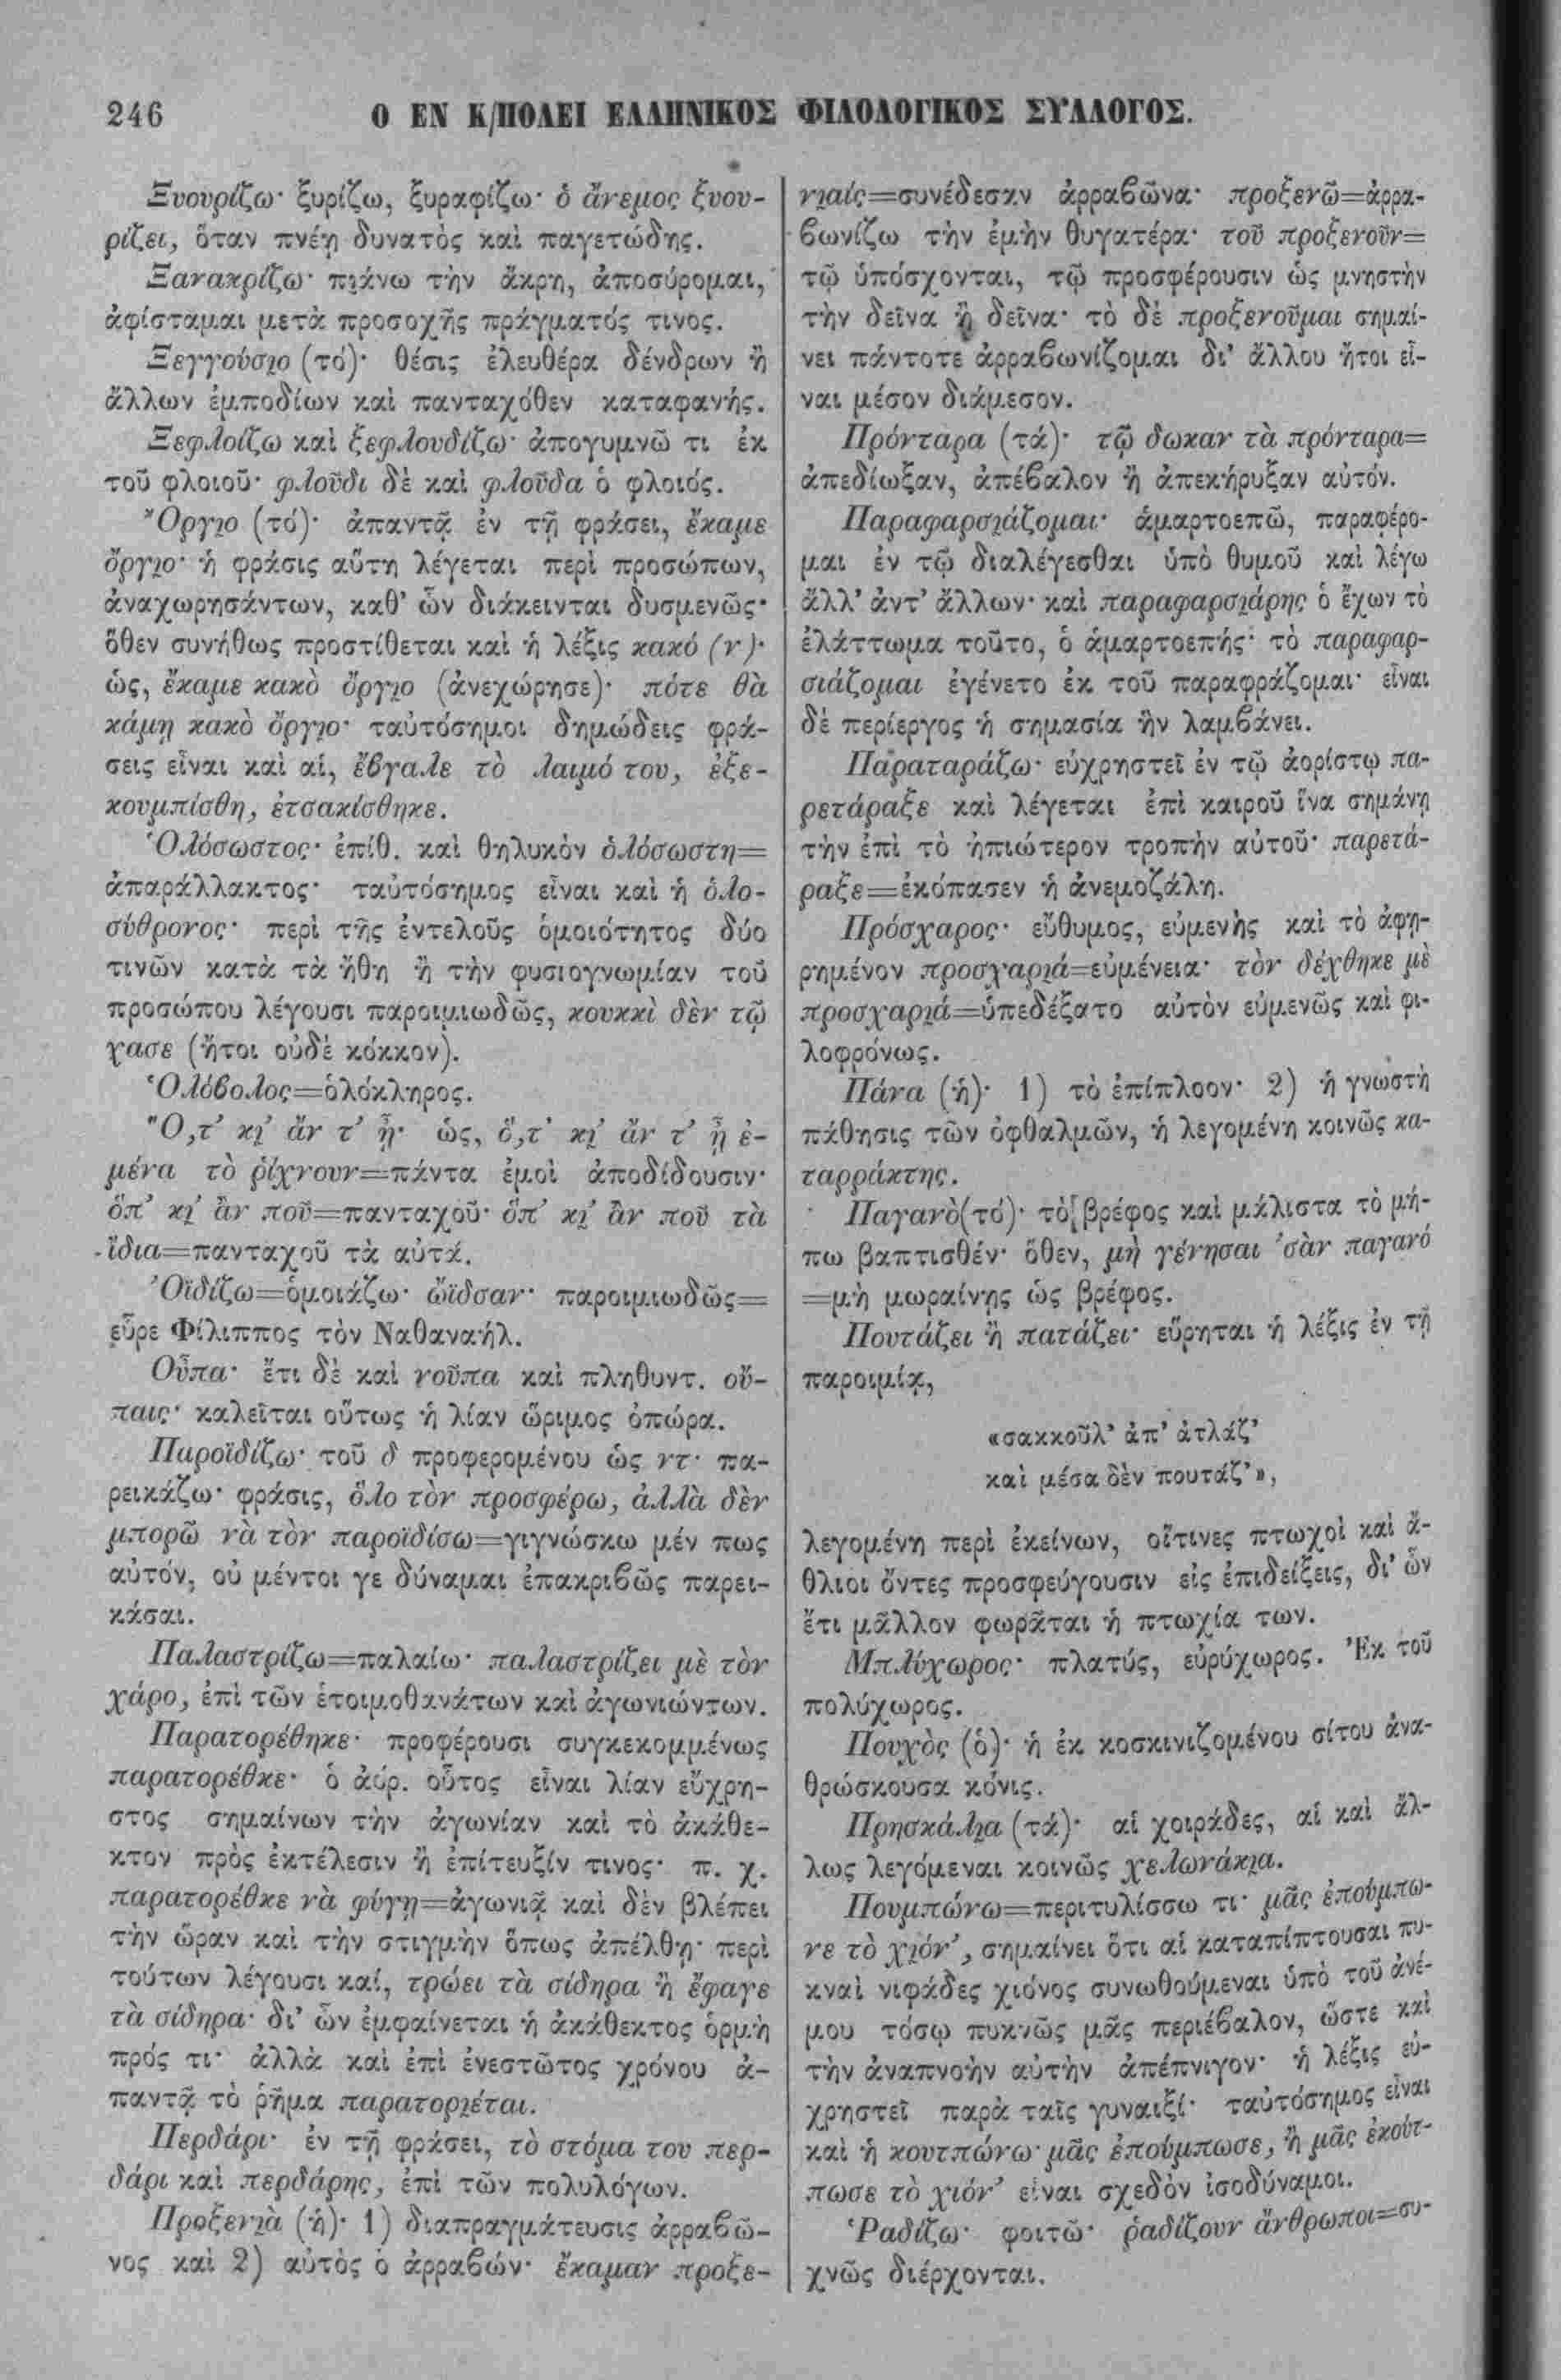 246 Ο ΕΝ Κ/ΠΟΛΕΙ ΕΛΛΗΝΙΚΟΣ ΦΙΛΟΛΟΓΙΚΟΣ ΣΥΛΛΟΓΟΣ.
Ξυουρίζω· ξυρίζω, ξυραφίζω· ὁ ἄνεμος ξυου-
ρίζει, ὅταν πνέῃ δυνατὸς καὶ παγετώδης.
Ξανακρίζω· πιάνω τὴν ἄκρη, ἀποσύρομαι,
ἀφίσταμαι μετὰ προσοχῆς πράγματός τινος.
Ξεγγούσιο (τό)· θέσις ἐλευθέρα δένδρων ἢ
ἄλλων ἐμποδίων καὶ πανταχόθεν καταφανής.
Ξεφλοίζω καὶ ξεφλουδίζω· ἀπογυμνῶ τι ἐκ
τοῦ φλοιοῦ· φλοῦδι δὲ καὶ φλοῦδα ὁ φλοιός.
Ὄργιο (τό)· ἀπαντᾷ ἐν τῇ φράσει, ἔκαμε
ὄργιο· ἡ φράσις αὕτη λέγεται περὶ προσώπων,
ἀναχωρησάντων, καθ' ὧν διάκεινται δυσμενῶς·
ὅθεν συνήθως προστίθεται καὶ ἡ λέξις κακό (ν)·
ὡς, ἔκαμε κακὸ ὄργιο (ἀνεχώρησε)· πότε θὰ
κάμῃ κακὸ ὄργιο· ταὐτόσημοι δημώδεις φρά-
σεις εἶναι καὶ αἱ, ἔβγαλε τὸ λαιμό του, ἐξε-
κουμπίσθη, ἐτσακίσθηκε.
Ὁλόσωστος· ἐπίθ. καὶ θηλυκὸν ὁλόσωστη=
ἀπαράλλακτος· ταὐτόσημος εἶναι καὶ ἡ ὁλο-
σύθρονος· περὶ τῆς ἐντελοῦς ὁμοιότητος δύο
τινῶν κατὰ τὰ ἤθη ἢ τὴν φυσιογνωμίαν τοῦ
προσώπου λέγουσι παροιμιωδῶς, κουκκὶ δὲν τῷ
χασε (ἤτοι οὐδὲ κόκκον).
Ὁλόβολος=ὁλόκληρος.
Ὅ,τ' κι' ἂν τ' ᾖ· ὡς, ὅ,τ' κι' ἂν τ' ᾖ ἐ-
μένα τὸ ῥίχνουν=πάντα ἐμοὶ ἀποδίδουσιν·
ὅπ' κι' ἂν ποῦ=πανταχοῦ· ὅπ' κι' ἂν ποῦ τὰ
ἴδια=πανταχοῦ τὰ αὐτά.
Ὀϊδίζω=ὁμοιάζω· ὤϊδσαν· παροιμιωδῶς=
εὗρε Φίλιππος τὸν Ναθαναήλ.
Οὖπα· ἔτι δὲ καὶ νοῦπα καὶ πληθυντ. οὔ-
παις· καλεῖται οὕτως ἡ λίαν ὥριμος ὀπώρα.
Παροϊδίζω· τοῦ δ προφερομένου ὡς ντ· πα-
ρεικάζω· φράσις, ὅλο τὸν προσφέρω, ἀλλὰ δὲν
μπορῶ νὰ τὸν παροϊδίσω=γιγνώσκω μέν πως
αὐτόν, οὐ μέντοι γε δύναμαι ἐπακριβῶς παρει-
κάσαι.
Παλαστρίζω=παλαίω· παλαστρίζει μὲ τὸν
χάρο, ἐπὶ τῶν ἑτοιμοθανάτων καὶ ἀγωνιώντων.
Παρατορέθηκε· προφέρουσι συγκεκομμένως
παρατορέθκε· ὁ ἀόρ. οὗτος εἶναι λίαν εὔχρη-
στος σημαίνων τὴν ἀγωνίαν καὶ τὸ ἀκάθε-
κτον πρὸς ἐκτέλεσιν ἢ ἐπίτευξίν τινος· π. χ.
παρατορέθκε νὰ φύγῃ=ἀγωνιᾷ καὶ δὲν βλέπει
τὴν ὥραν καὶ τὴν στιγμὴν ὅπως ἀπέλθῃ· περὶ
τούτων λέγουσι καί, τρώει τὰ σίδηρα ἢ ἔφαγε
τὰ σίδηρα· δι' ὧν ἐμφαίνεται ἡ ἀκάθεκτος ὁρμὴ
πρός τι· ἀλλὰ καὶ ἐπὶ ἐνεστῶτος χρόνου ἀ-
παντᾷ τὸ ῥῆμα παρατοριέται.
Περδάρι· ἐν τῇ φράσει, τὸ στόμα του περ-
δάρι καὶ περδάρης, ἐπὶ τῶν πολυλόγων.
Προξενιὰ (ἡ)· 1) διαπραγμάτευσις ἀρραβῶ-
νος καὶ 2) αὐτὸς ὁ ἀρραβών· ἔκαμαν προξε-
νιαίς=συνέδεσαν ἀρραβῶνα· προξενῶ=ἀρρα-
βωνίζω τὴν ἐμὴν θυγατέρα· τοῦ προξενοῦν=
τῷ ὑπόσχονται, τῷ προσφέρουσιν ὡς μνηστὴν
τὴν δεῖνα ἢ δεῖνα· τὸ δὲ προξενοῦμαι σημαί-
νει πάντοτε ἀρραβωνίζομαι δι' ἄλλου ἤτοι εἶ-
ναι μέσον διάμεσον.
Πρόνταρα (τά)· τῷ δωκαν τὰ πρόνταρα=
ἀπεδίωξαν, ἀπέβαλον ἢ ἀπεκήρυξαν αὐτόν.
Παραφαρσιάζομαι· ἁμαρτοεπῶ, παραφέρο-
μαι ἐν τῷ διαλέγεσθαι ὑπὸ θυμοῦ καὶ λέγω
ἄλλ' ἀντ' ἄλλων· καὶ παραφαρσιάρης ὁ ἔχων τὸ
ἐλάττωμα τοῦτο, ὁ ἁμαρτοεπής· τὸ παραφαρ-
σιάζομαι ἐγένετο ἐκ τοῦ παραφράζομαι· εἶναι
δὲ περίεργος ἡ σημασία ἣν λαμβάνει.
Παραταράζω· εὐχρηστεῖ ἐν τῷ ἀορίστῳ πα-
ρετάραξε καὶ λέγεται ἐπὶ καιροῦ ἵνα σημάνῃ
τὴν ἐπὶ τὸ ἠπιώτερον τροπὴν αὐτοῦ· παρετά-
ραξε=ἐκόπασεν ἡ ἀνεμοζάλη.
Πρόσχαρος· εὔθυμος, εὐμενὴς καὶ τὸ ἀφῃ-
ρημένον προσχαριά=εὐμένεια· τὸν δέχθηκε μὲ
προσχαριά=ὑπεδέξατο αὐτὸν εὐμενῶς καὶ φι-
λοφρόνως.
Πάνα (ἡ)· 1) τὸ ἐπίπλοον· 2) ἡ γνωστὴ
πάθησις τῶν ὀφθαλμῶν, ἡ λεγομένη κοινῶς κα-
ταρράκτης.
Παγανὸ(τό)· τὸ βρέφος καὶ μάλιστα τὸ μή-
πω βαπτισθέν· ὅθεν, μὴ γένησαι 'σὰν παγανό
=μὴ μωραίνῃς ὡς βρέφος.
Πουτάζει ἢ πατάζει· εὕρηται ἡ λέξις ἐν τῇ
παροιμίᾳ,
«σακκοῦλ' ἀπ' ἀτλάζ'
καὶ μέσα δὲν πουτάζ'»,
λεγομένη περὶ ἐκείνων, οἵτινες πτωχοὶ καὶ ἄ-
θλιοι ὄντες προσφεύγουσιν εἰς ἐπιδείξεις, δι' ὧν
ἔτι μᾶλλον φωρᾶται ἡ πτωχία των.
Μπλύχωρος· πλατύς, εὐρύχωρος. Ἐκ τοῦ
πολύχωρος.
Πουχὸς (ὁ)· ἡ ἐκ κοσκινιζομένου σίτου ἀνα-
θρώσκουσα κόνις.
Πρησκάλια (τά)· αἱ χοιράδες, αἱ καὶ ἄλ-
λως λεγόμεναι κοινῶς χελωνάκια.
Πουμπώνω=περιτυλίσσω τι· μᾶς ἐπούμπω-
νε τὸ χιόν', σημαίνει ὅτι αἱ καταπίπτουσαι πυ-
κναὶ νιφάδες χιόνος συνωθούμεναι ὑπὸ τοῦ ἀνέ-
μου τόσῳ πυκνῶς μᾶς περιέβαλον, ὥστε καὶ
τὴν ἀναπνοὴν αὐτὴν ἀπέπνιγον· ἡ λέξις εὐ-
χρηστεῖ παρὰ ταῖς γυναιξί· ταὐτόσημος εἶναι
καὶ ἡ κουτπώνω· μᾶς ἐπούμπωσε, ἢ μᾶς ἐκούτ-
πωσε τὸ χιόν' εἶναι σχεδὸν ἰσοδύναμοι.
Ῥαδίζω· φοιτῶ· ῥαδίζουν ἄνθρωποι=συ-
χνῶς διέρχονται.